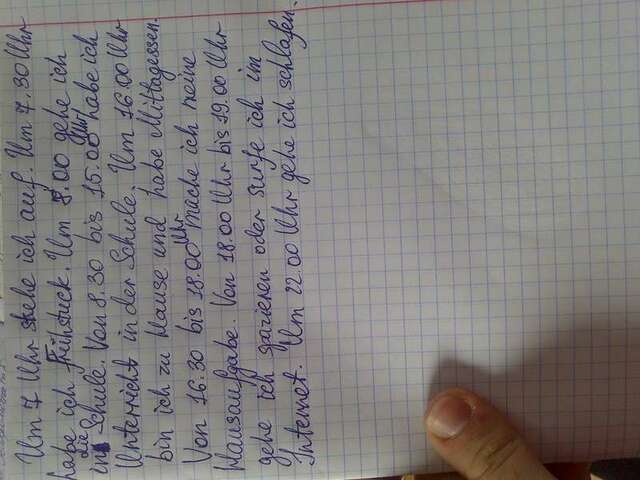 Um 7 Uhr stehe ich auf. Um 7.30 Uhr
habe ich Frühstück. Um 8.00 gehe ich
in die Schule. Von 8.30 bis 15.00 Uhr habe ich
Unterricht in der Schule. Um 16.00 Uhr
bin ich zu Hause und habe Mittagessen.
Von 16.30 bis 18.00 Uhr mache ich meine
Hausaufgabe. Von 18.00 Uhr bis 19.00 Uhr
gehe ich spazieren oder surfe ich im
Internet. Um 22.00 Uhr gehe ich schlafen.